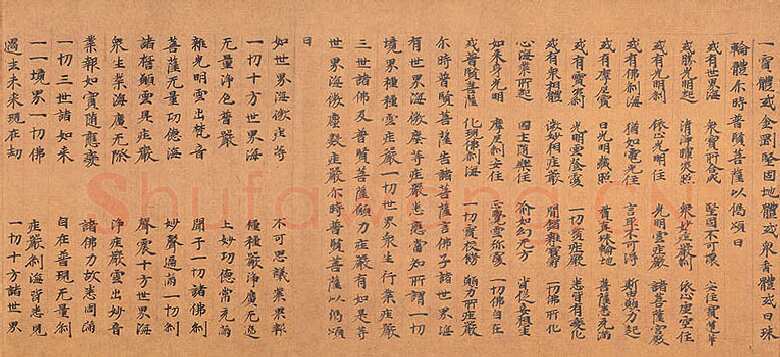 一寶體或金剛堅固地體或衆香體或日珠
輪體尒時普賢菩薩以偈頌曰
或有世界海 衆寶所合成 堅固不可壞 安住寶蓮華
或勝光明起 清淨曜炎照 衆妙莊嚴剎 依止虛空住
或有光明剎 依止光明住 光明雲莊嚴 諸菩薩宮殿
或有佛剎海 猶如電光住 言畢不可得 斯皆願力起
或有摩尼寶 日光明藏照 普真珠輪地 菩薩悉充滿
或有寶炎剎 光明雲蔭覆 一切寶莊嚴 悉皆有變化
或有衆相體 微妙相莊嚴 諸雜寶 一切佛所化
心海業所起 國土隨樂住 喻如幻无方 皆從妄想生
如來身光明 摩尼剎安住 覺雲弥覆 一切佛自在
或普賢菩薩 化現佛剎海 一切寶校飾 願力所莊嚴
尒時普賢菩薩告諸菩薩言佛子諸世界海
有世界海微塵等莊嚴悉應當知所謂一切
境界種種雲莊嚴一切世界衆生行業莊嚴
三世諸佛及普賢菩薩願力莊嚴有如是等
世界海微塵數莊嚴尒時普賢菩薩以偈頌
曰
如世界海微塵等 不可思議業果報
一切十方世界海 種種嚴淨廣无邊
无量淨色普嚴 上妙功德常充滿
雜光明雲出梵音 聞于一切諸佛剎
菩薩无量功德海 妙聲遍滿一切剎
諸願雲莊嚴 聲震十方世界海
衆生業海廣无際 淨莊嚴雲出妙音
業報如實隨應受 諸佛力故悉圓滿
一切三世諸如來 自在普現无量剎
一一境界一切佛 莊嚴剎海皆悉見
過去未來現在劫 一切十方諸世界